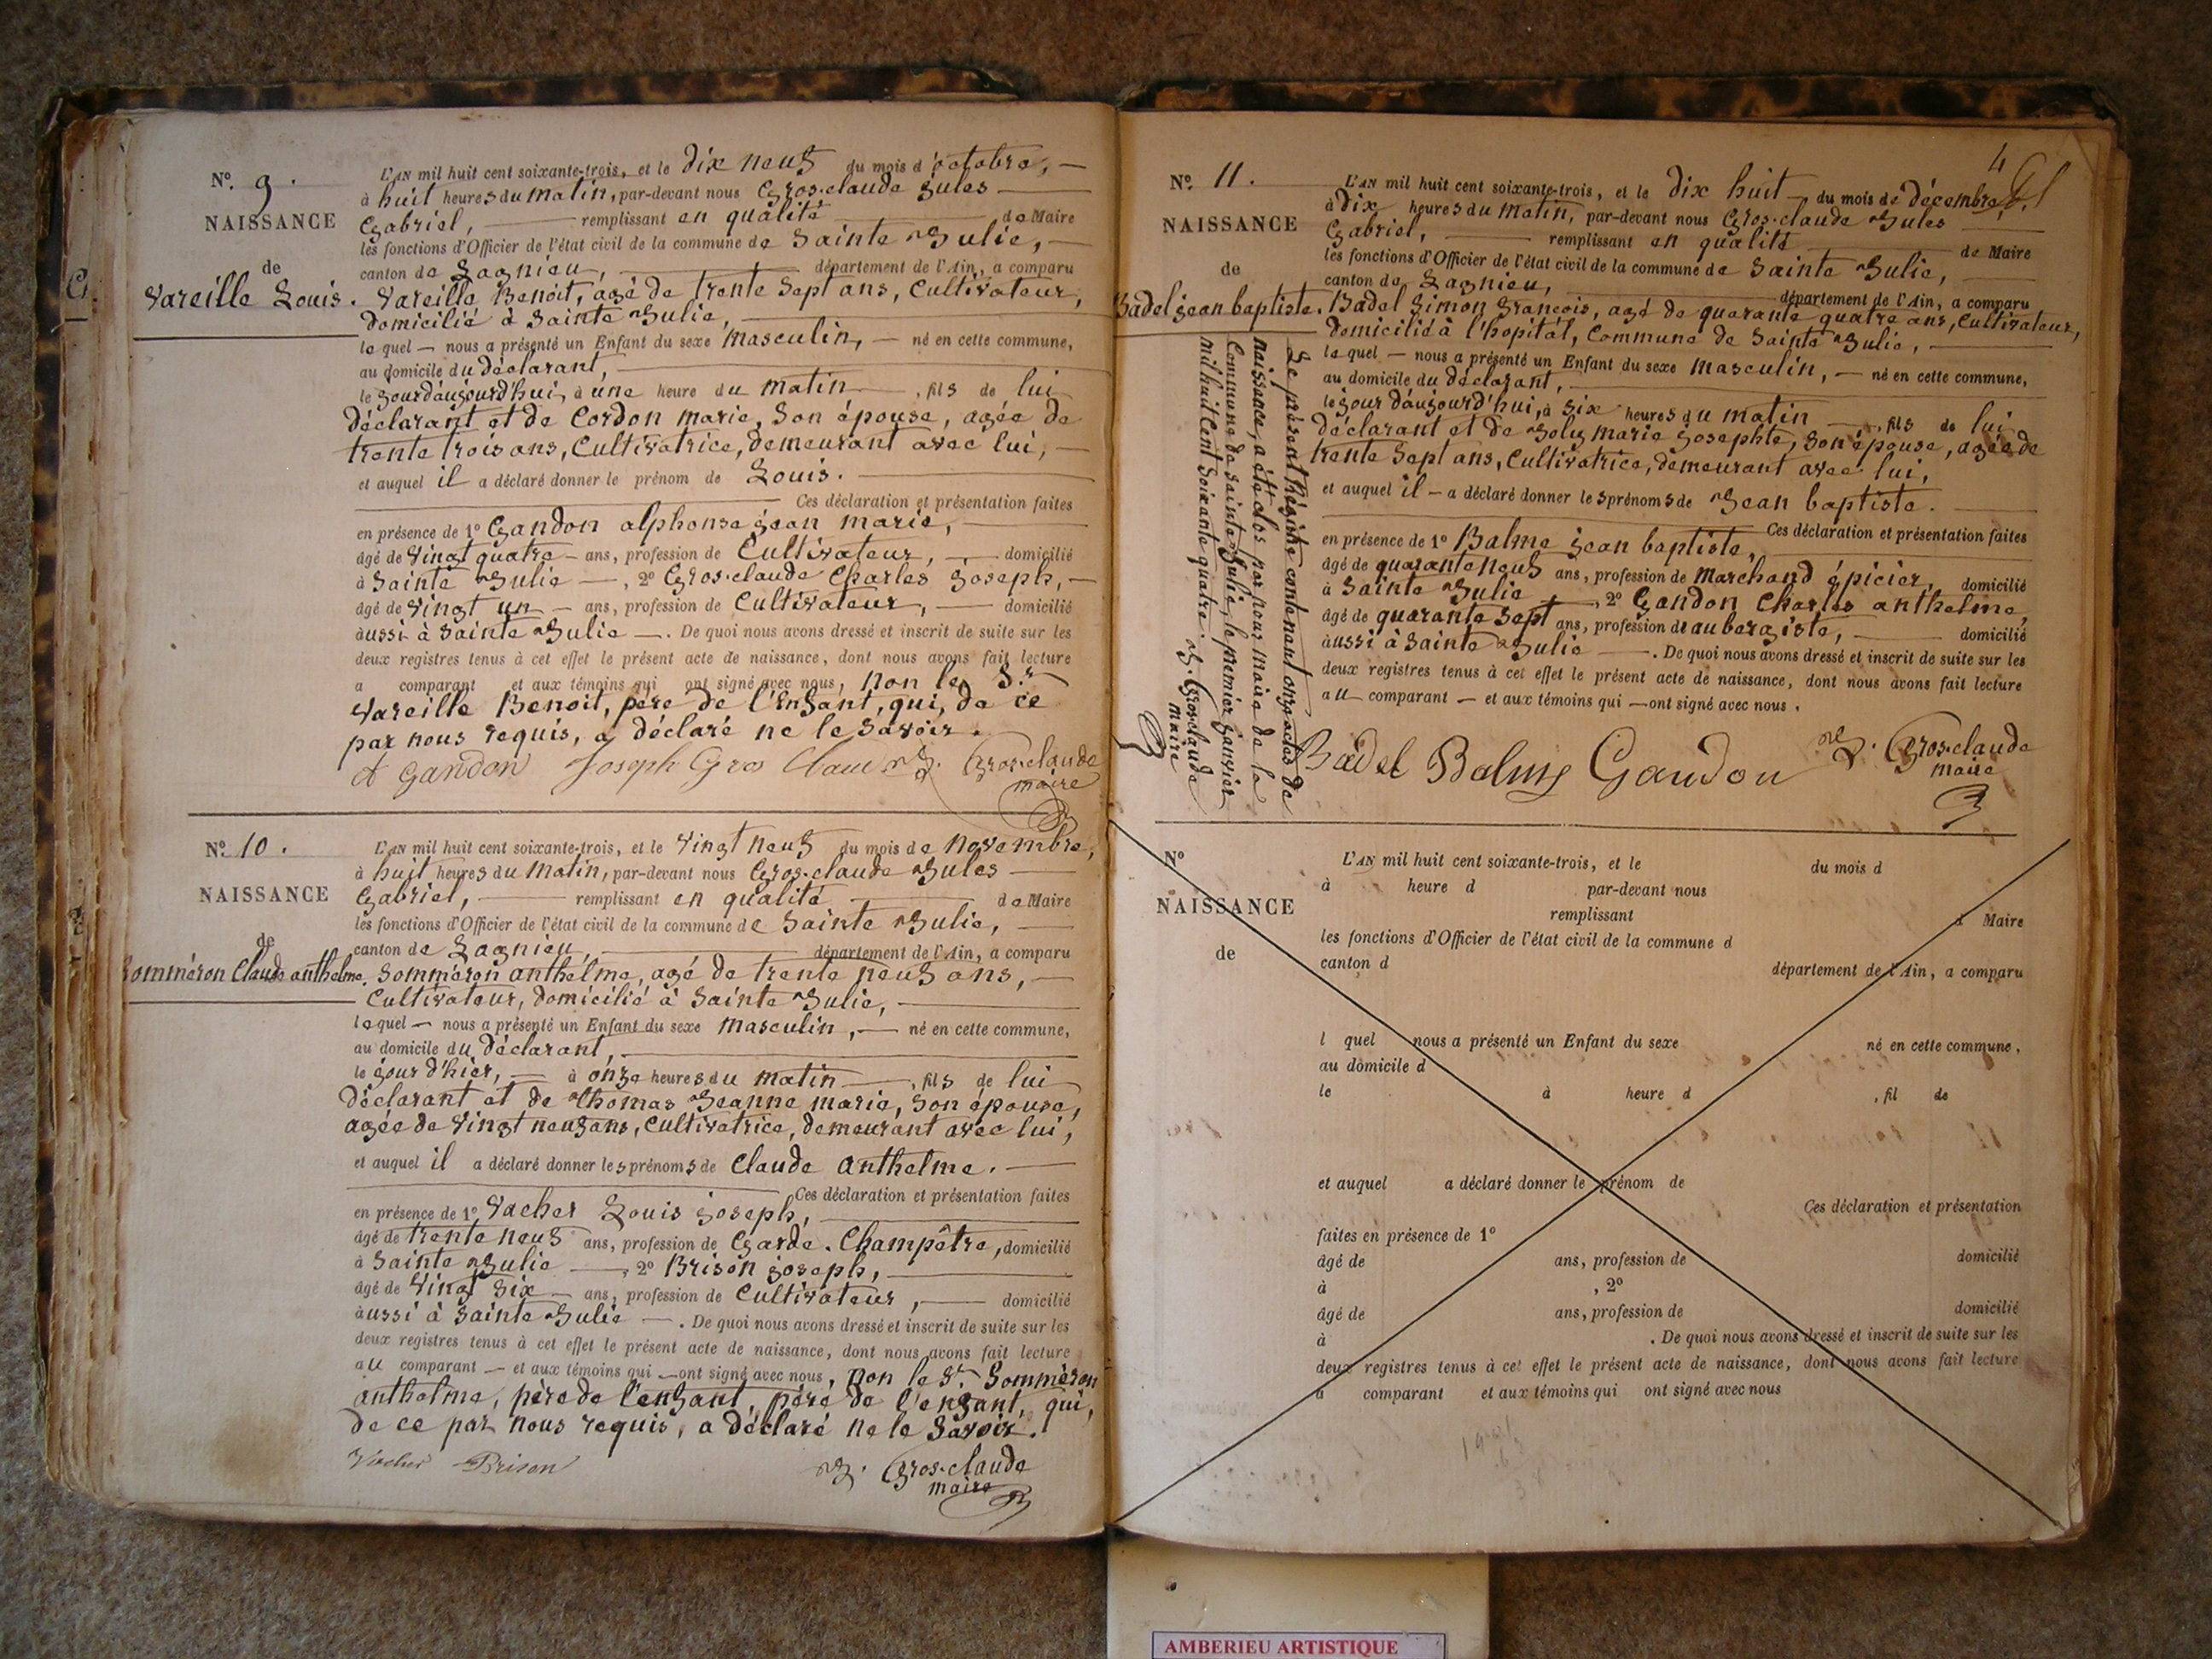 N.° 9.
NAISSANCE
de
Vareille Louis.
L'AN mil huit cent soixante-trois, et le dix neuf du mois d'octobre,
à huit heures du matin, par-devant nous Gros-claude Jules
Gabriel, remplissant en qualité de Maire
les fonctions d'Officier de l'état civil de la commune de Sainte Julie,
canton de Lagnieu, département de l'Ain, a comparu
Vareille Benoit, agé de trente sept ans, Cultivateur,
domicilié à Sainte Julie,
lequel nous a présenté un Enfant du sexe masculin, né en cette commune,
au domicile du déclarant,
le jour d'aujourd'hui, à une heure du matin, fils de lui
déclarant et de Cordon marie, son épouse, agée de
trente trois ans, Cultivatrice, demeurant avec lui,
et auquel il a déclaré donner le prénom de Louis.
Ces déclaration et présentation faites
en présence de 1° Gandon alphonse jean marie,
âgé de vingt quatre ans, profession de Cultivateur, domicilié
à Sainte Julie, 2° Gros-claude Charles joseph,
âgé de vingt un ans, profession de Cultivateur, domicilié
aussi à Sainte Julie. De quoi nous avons dressé et inscrit de suite sur les
deux registres tenus à cet effet le présent acte de naissance, dont nous avons fait lecture
a comparant et aux témoins qui ont signé avec nous, non le Sr.
Vareille Benoit, père de l'enfant, qui, de ce
par nous requis, a déclaré ne le savoir.
A Gandon Joseph Gros Claude J. Gros-claude
maire
N.° 10.
NAISSANCE
de
Somméron Claude anthelme.
L'AN mil huit cent soixante-trois, et le vingt neuf du mois de novembre,
à huit heures du matin, par-devant nous Gros-claude Jules
Gabriel, remplissant en qualité de Maire
les fonctions d'Officier de l'état civil de la commune de Sainte Julie,
canton de Lagnieu, département de l'Ain, a comparu
Somméron anthelme, agé de trente neuf ans,
Cultivateur, domicilié à Sainte Julie,
lequel nous a présenté un Enfant du sexe masculin, né en cette commune,
au domicile du déclarant,
le jour d'hier, à onze heures du matin, fils de lui
déclarant et de Thomas Jeanne marie, son épouse,
agée de vingt neuf ans, Cultivatrice, demeurant avec lui,
et auquel il a déclaré donner les prénoms de Claude anthelme.
Ces déclaration et présentation faites
en présence de 1° Vacher Louis joseph,
âgé de trente neuf ans, profession de Garde-Champêtre, domicilié
à Sainte Julie, 2° Brison joseph,
âgé de vingt six ans, profession de Cultivateur, domicilié
aussi à Sainte Julie. De quoi nous avons dressé et inscrit de suite sur les
deux registres tenus à cet effet le présent acte de naissance, dont nous avons fait lecture
au comparant et aux témoins qui ont signé avec nous, non le Sr. Somméron
anthelme, père de l'enfant, père de l'enfant, qui,
de ce par nous requis, a déclaré ne le savoir.
Vacher Brison J. Gros-claude
maire
4
N.° 11.
NAISSANCE
de
Badel jean baptiste.
L'AN mil huit cent soixante-trois, et le dix huit du mois de décembre,
à dix heures du matin, par-devant nous Gros-claude Jules
Gabriel, remplissant en qualité de Maire
les fonctions d'Officier de l'état civil de la commune de Sainte Julie,
canton de Lagnieu, département de l'Ain, a comparu
Badel Simon françois, agé de quarante quatre ans, Cultivateur,
domicilié à l'hopitât, Commune de Sainte Julie,
lequel nous a présenté un Enfant du sexe masculin, né en cette commune,
au domicile du déclarant,
le jour d'aujourd'hui, à six heures du matin, fils de lui
déclarant et de Joly marie josephte, son épouse, agée de
trente sept ans, Cultivatrice, demeurant avec lui,
et auquel il a déclaré donner les prénoms de Jean baptiste.
Ces déclaration et présentation faites
en présence de 1° Balme jean baptiste,
âgé de quarante neuf ans, profession de marchand épicier, domicilié
à Sainte Julie, 2° Gandon Charles anthelme,
âgé de quarante sept ans, profession de aubergiste, domicilié
aussi à Sainte Julie. De quoi nous avons dressé et inscrit de suite sur les
deux registres tenus à cet effet le présent acte de naissance, dont nous avons fait lecture
au comparant et aux témoins qui ont signé avec nous.
Badel Balme Gandon J. Gros-claude
maire
Le présent Régistre contenant onze actes de
naissance, a été clos par nous maire de la
Commune de Sainte Julie, le premier janvier
mil huit Cent Soixante quatre.
J. Gros-claude
maire
N°
NAISSANCE
de
L'AN mil huit cent soixante-trois, et le du mois d
à heure d par-devant nous
remplissant d Maire
les fonctions d'Officier de l'état civil de la commune d
canton d département de l'Ain, a comparu
l quel nous a présenté un Enfant du sexe né en cette commune,
au domicile d
le à heure d , fil de
et auquel a déclaré donner le prénom de
Ces déclaration et présentation
faites en présence de 1°
âgé de ans, profession de domicilié
à , 2°
âgé de ans, profession de domicilié
à . De quoi nous avons dressé et inscrit de suite sur les
deux registres tenus à cet effet le présent acte de naissance, dont nous avons fait lecture
a comparant et aux témoins qui ont signé avec nous
AMBERIEU ARTISTIQUE